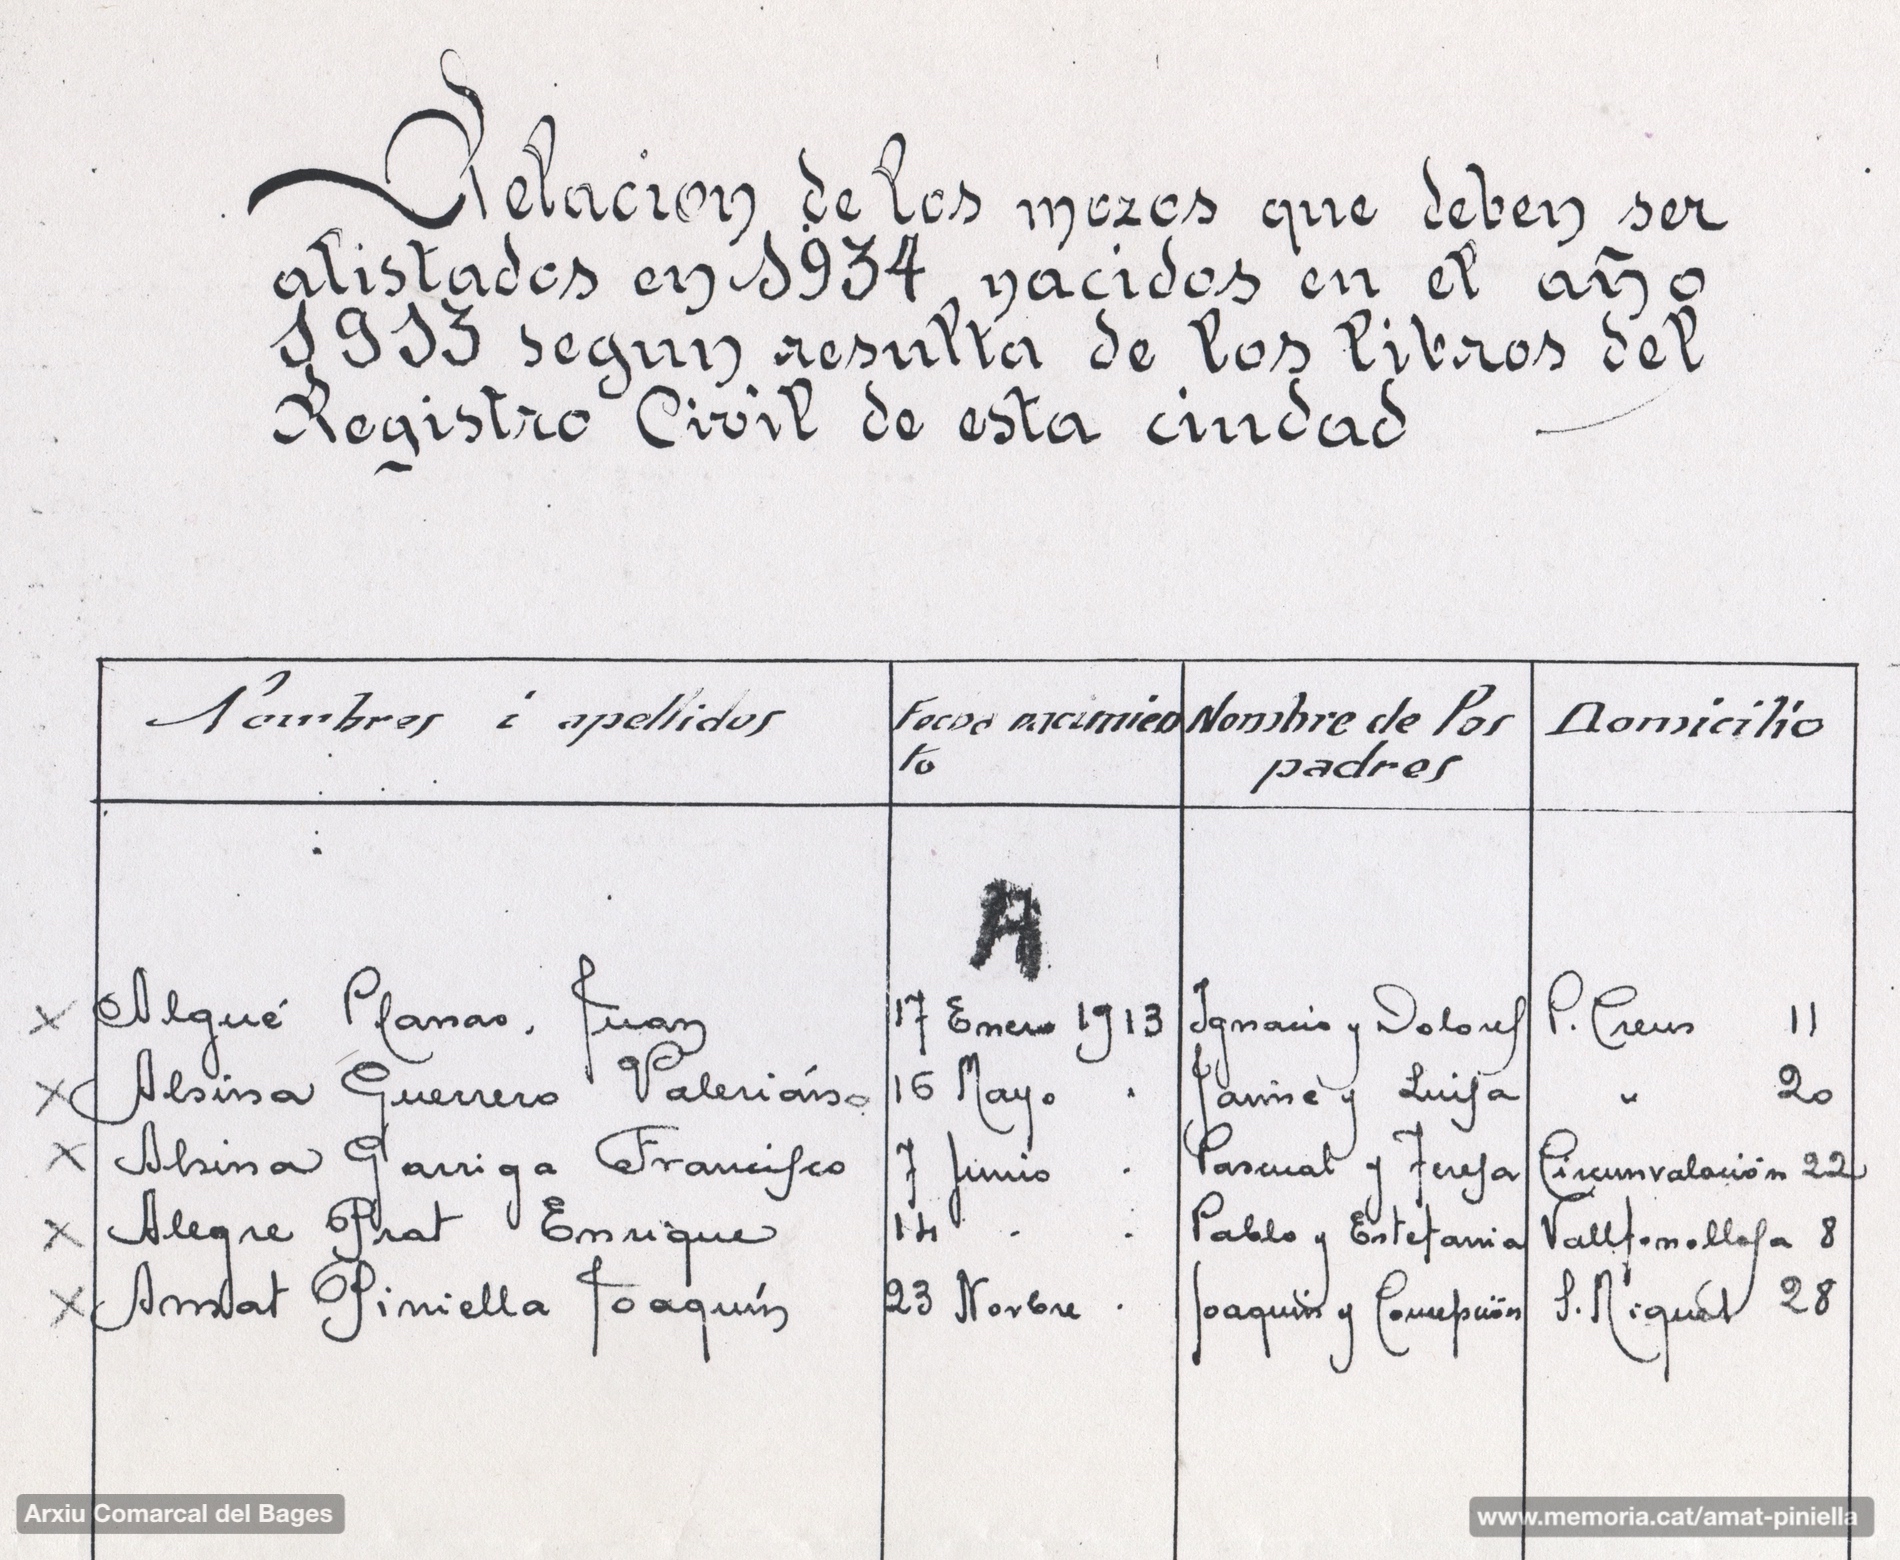 Relacion de los mozos que deben ser
alistados en 1934, nacidos en el año
1913 segun resulta de los libros del
Registro Civil de esta ciudad
Nombres i apellidos Fecha nacimien Nombre de los Domicilio
to padres
A
x Algué Planas, Juan 17 Enero 1913 Ignacio y Dolores P. Creus 11
x Alsina Guerrero Valeriáno 16 Mayo . Jaime y Luisa " 20
x Alsina Garriga Francisco 7 Junio . Pascual y Teresa Circunvalación 22
x Alegre Prat Enrique 14 . . Pablo y Estefania Vallfonollosa 8
x Amat Piniella Joaquín 23 Novbre . Joaquín y Concepción S. Miguel 28
Arxiu Comarcal del Bages
www.memoria.cat/amat-piniella